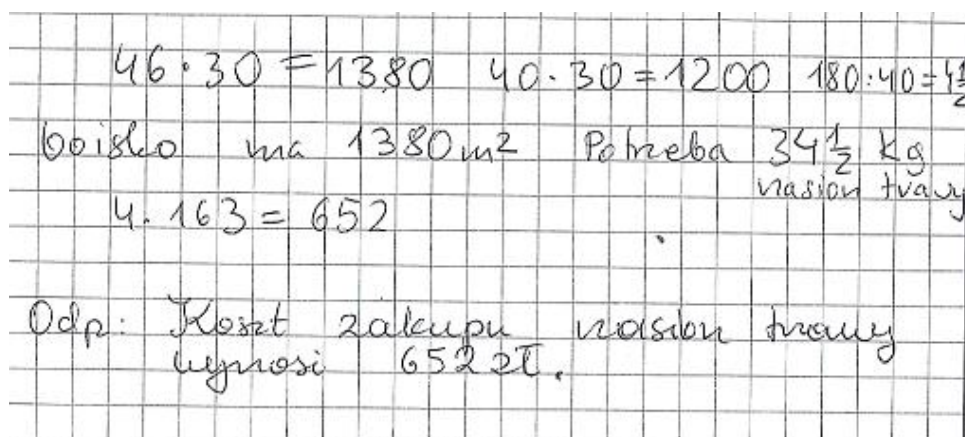 46·30=1380 40·30=1200 180:40=4½
boisko ma 1380m² Potrzeba 34½ kg
nasion trawy
4·163=652
Odp: Koszt zakupu nasion trawy
wynosi 652 zł.